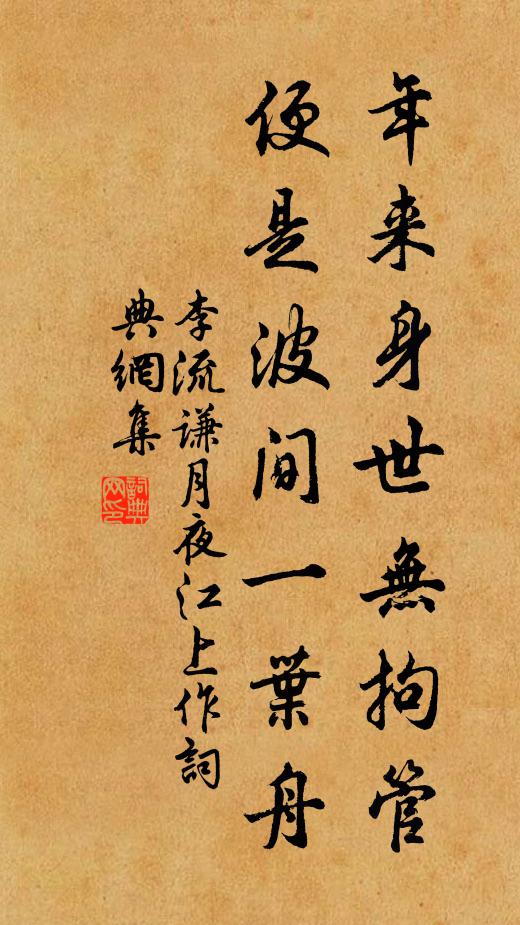 年来身世無拘管
便是波間一葉舟
李流謙月夜江上作詞
典網集
詞典
网印